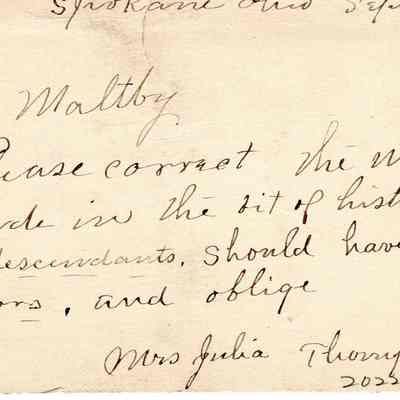 Spokane Ohio Sep
Maltby
lease correct the m
de in the bit of hist
descendants. Should have
ors, and oblige
Mrs Julia Thorny
2022